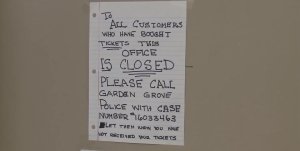 To
ALL CUSTOMERS
WHO HAVE BOUGHT
TICKETS THIS
OFFICE
IS CLOSED
PLEASE CALL
GARDEN GROVE
POLICE WITH CASE
NUMBER #16033463
LET THEM KNOW YOU HAVE
NOT RECEIVED YOUR TICKETS